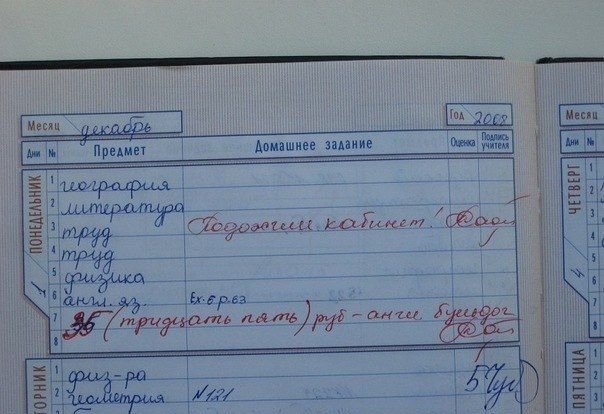 Месяц декабрь Год 2008 Месяц
Дни № Предмет Домашнее задание Оценка Подпись учителя Дни №
ПОНЕДЕЛЬНИК 1
1 география
2 литература
3 труд Подожгли кабинет!
4 труд
5 физика
6 англ. яз. Ex. 6 p. 63
7 35 (тридцать пять) руб - англ. бульдог
8
ВТОРНИК
1 физ-ра
2 геометрия №121 5
ЧЕТВЕРГ 4
1
2
3
4
5
6
7
8
ПЯТНИЦА
1
2